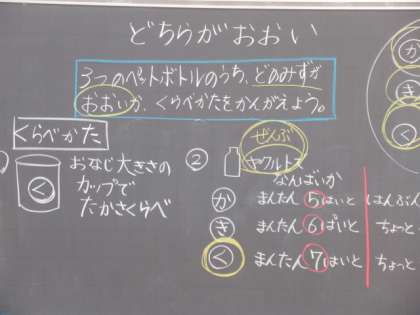 どちらがおおい
3つのペットボトルのうち、どのみずが
おおいか、くらべかたをかんがえよう。
くらべかた
く
おなじ大きさの
カップで
たかさくらべ
②
ぜんぶ
ヤクルトで
なんばいか
か まんたん5はいと はんぶん
き まんたん6ぱいと ちょっと
く まんたん7はいと ちょっと
か
き
く